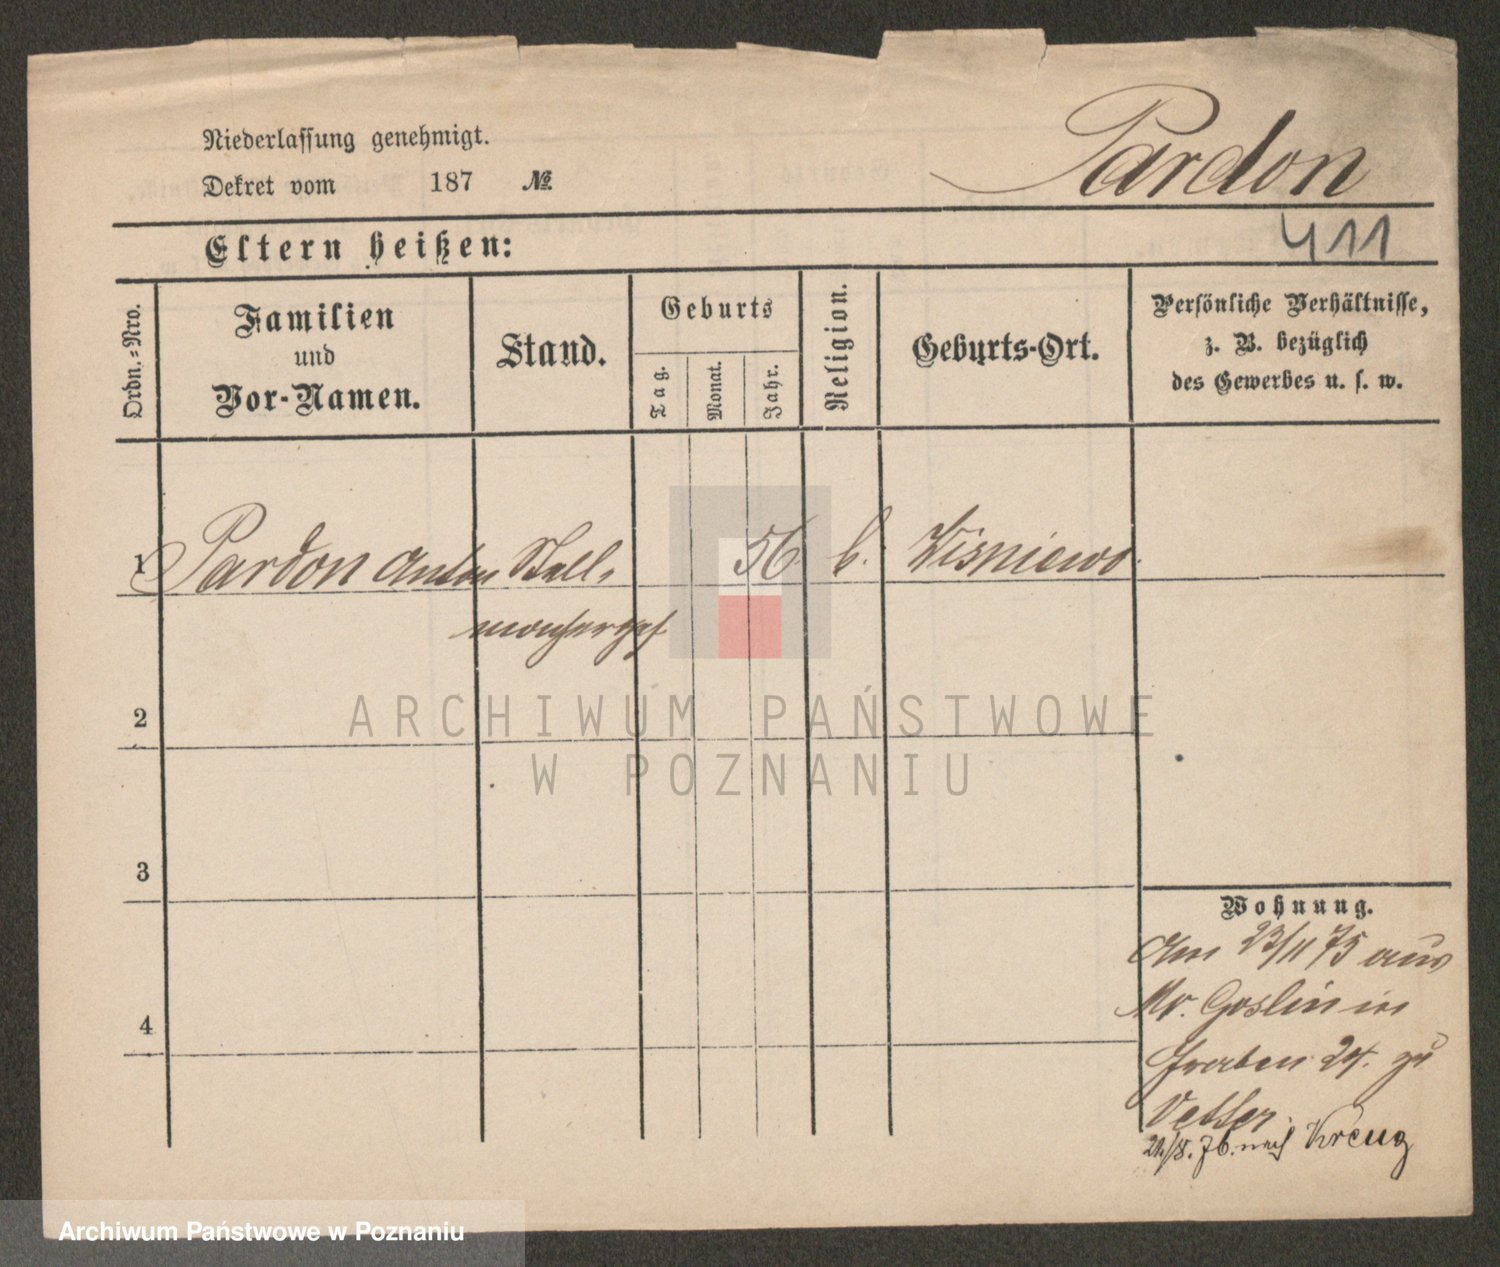 Niederlassung genehmigt.
Dekret vom 187 №
Pardon
411
Eltern heißen:
Ordn.=Nro.
Familien
und
Vor-Namen.
Stand.
Geburts
Tag.
Monat.
Jahr.
Religion.
Geburts-Ort.
Persönliche Verhältnisse,
z. B. bezüglich
des Gewerbes u. s. w.
1 Pardon Anton Stell- 56 k. Wisniewo.
machergs
2
3
4
Wohnung.
Am 23/11 75 aus
Mr. Goslin in
Graben 24. zu
Vetter.
21./8. 76. nach Kreuz
ARCHIWUM PAŃSTWOWE
W POZNANIU
Archiwum Państwowe w Poznaniu